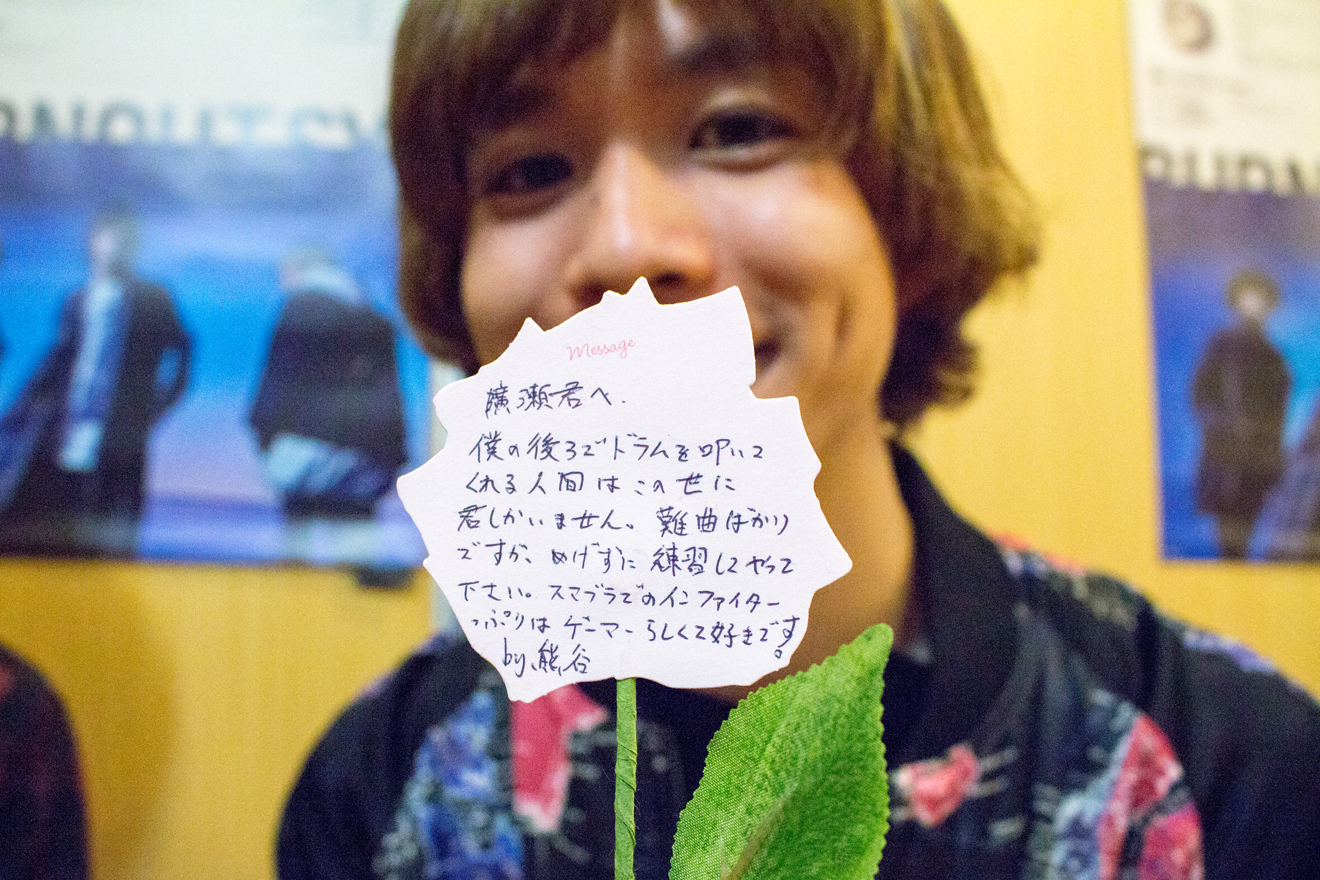 Message
廣瀬君へ.
僕の後ろでドラムを叩いて
くれる人間はこの世に
君しかいません。難曲ばかり
ですが、めげずに練習してやって
下さい。スマブラでのインファイター
っぷりはゲーマーらしくて好きです。
by.熊谷
RNOUT SY
BURN